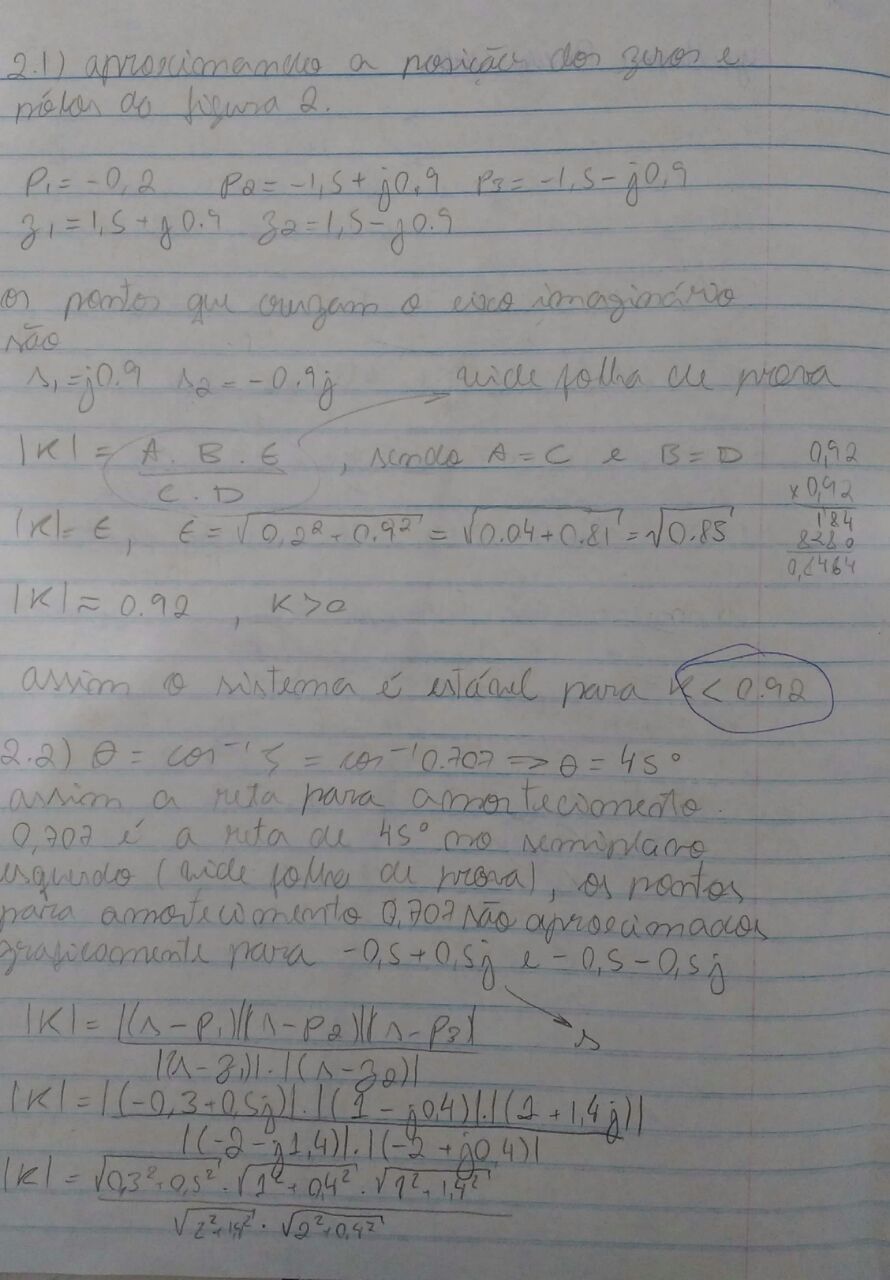 2.1) aproximando a posição dos zeros e
pólos da figura 2.
P₁ = -0,2 P₂ = -1,5 + j0,9 P₃ = -1,5 - j0,9
z₁ = 1,5 + j0.9 z₂ = 1,5 - j0.9
os pontos que cruzam o eixo imaginário
são
s₁ = j0.9 s₂ = -0.9j vide folha de prova
|K| = A . B . E / C . D , sendo A = C e B = D
0,92
x 0,92
184
8280
0,8464
|K| = E , E = √(0,2² + 0,9²) = √(0.04 + 0.81) = √0.85
|K| ≈ 0.92 , K > 0
assim o sistema é estável para K < 0.92
2.2) θ = cos⁻¹ ζ = cos⁻¹ 0.707 => θ = 45°
assim a reta para amortecimento
0,707 é a reta de 45° no semiplano
esquerdo (vide folha de prova), os pontos
para amortecimento 0,707 são aproximados
graficamente para -0,5 + 0,5j e -0,5 - 0,5j
s
|K| = |(s - P₁)||(s - P₂)||(s - P₃)| / |(s - z₁)| . |(s - z₂)|
|K| = |(-0,3 + 0,5j)| . |(1 - j0,4)| . |(1 + 1,4j)| / |(-2 - j1,4)| . |(-2 + j0,4)|
|K| = √(0,3² + 0,5²) . √(1² + 0,4²) . √(1² + 1,4²) / √(2² + 1,4²) . √(2² + 0,4²)